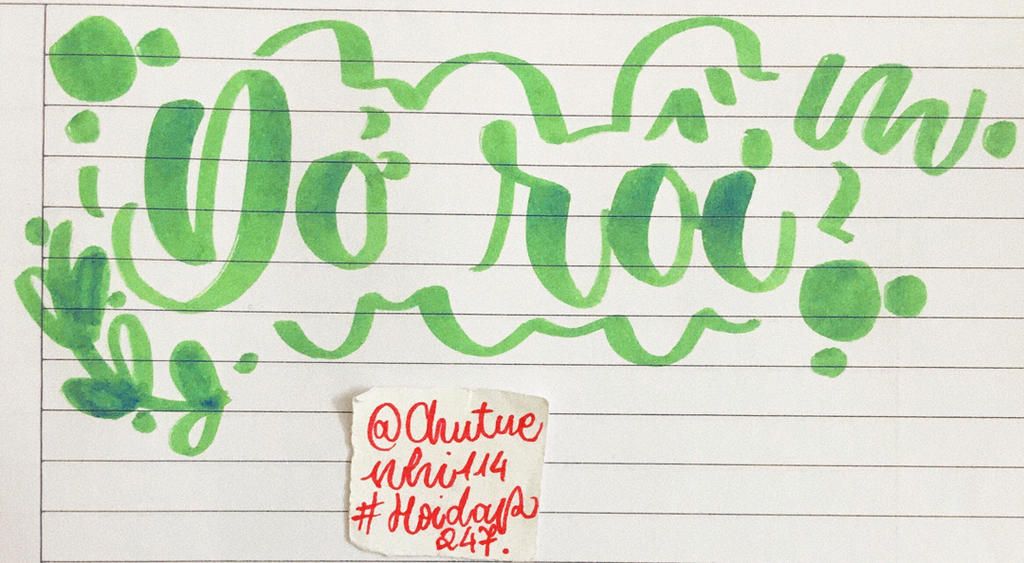 Dở rồi
@Chutue
nhi114
#Hoidap
247.